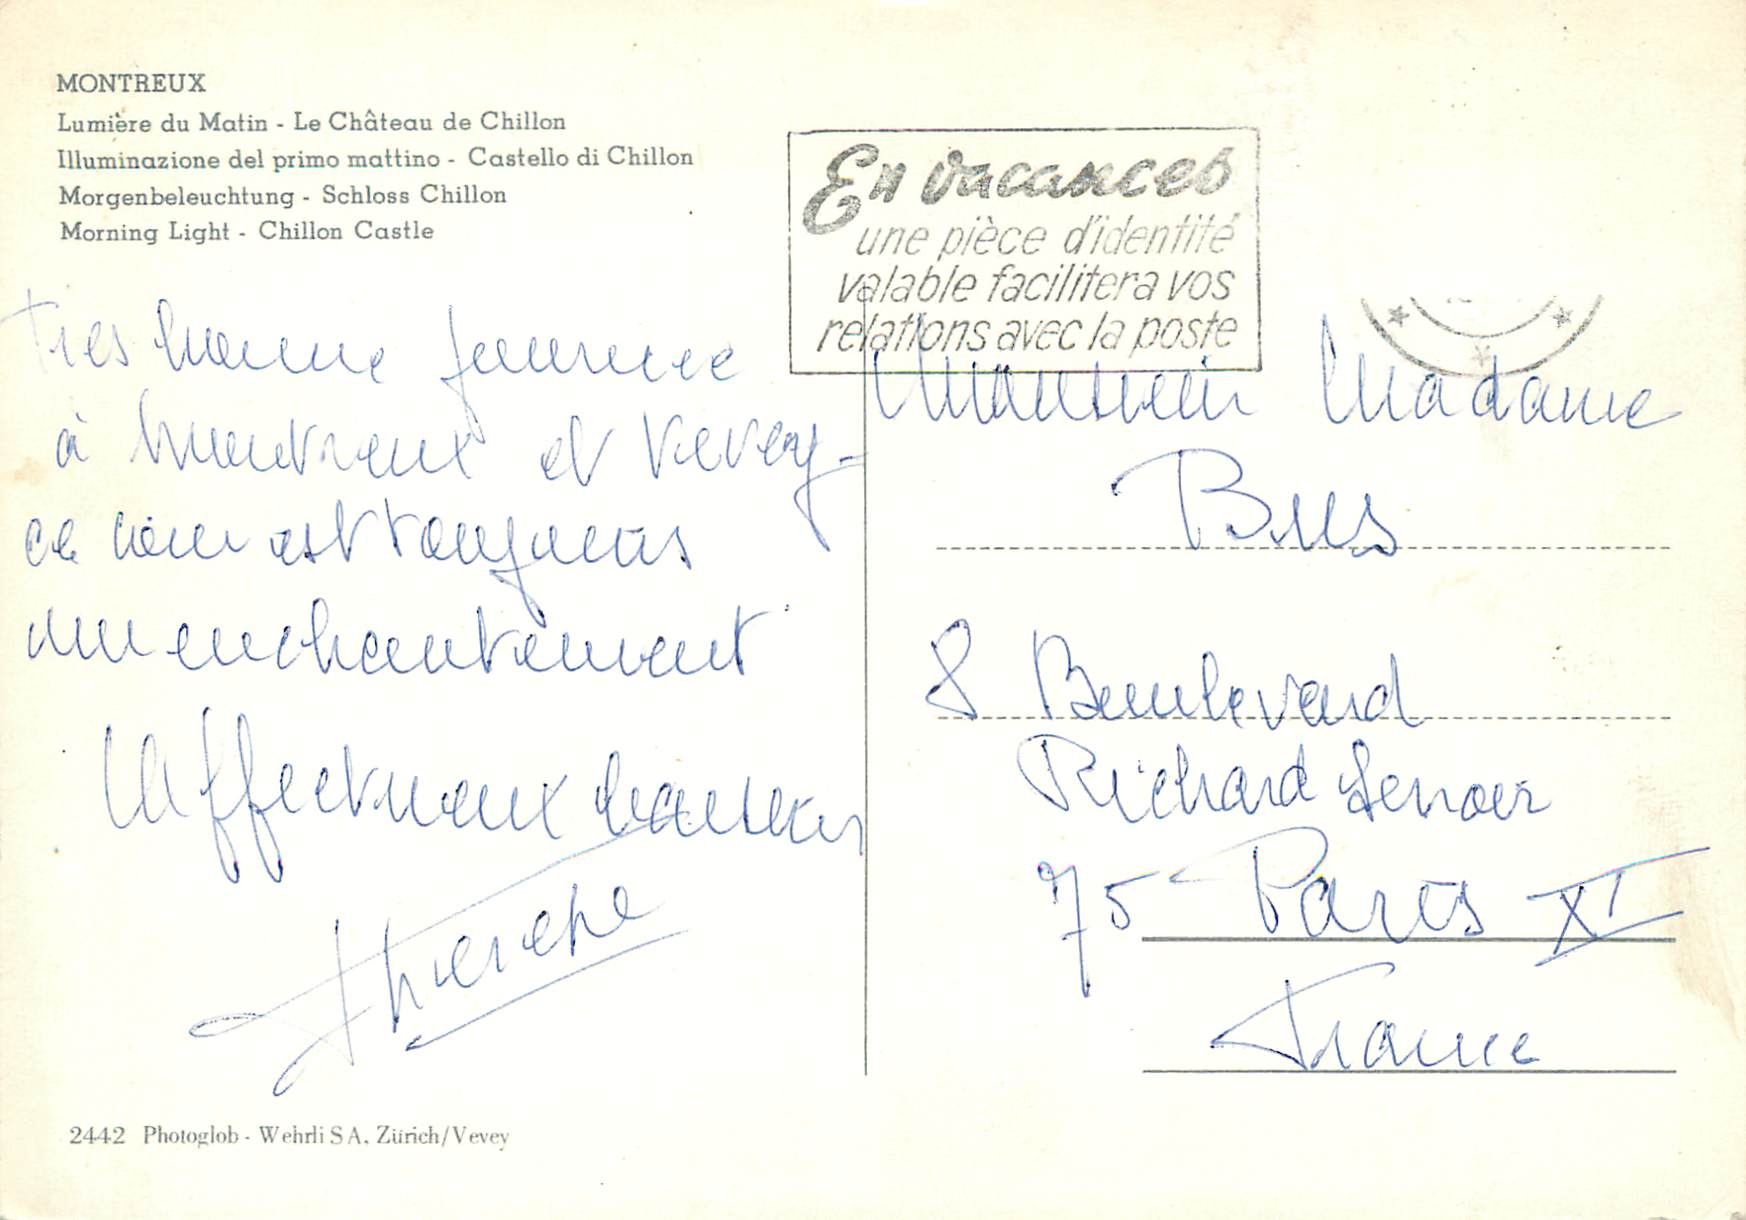 MONTREUX
Lumière du Matin - Le Château de Chillon
Illuminazione del primo mattino - Castello di Chillon
Morgenbeleuchtung - Schloss Chillon
Morning Light - Chillon Castle
En vacances
une pièce d'identité
valable facilitera vos
relations avec la poste
Très bonne journée
à Montreux et Vevey -
ce coin est toujours
un enchantement
Affectueux baisers
Thérèse
Monsieur Madame
8 Boulevard
Richard Lenoir
75 Paris XI
France
2442 Photoglob - Wehrli SA, Zürich/Vevey